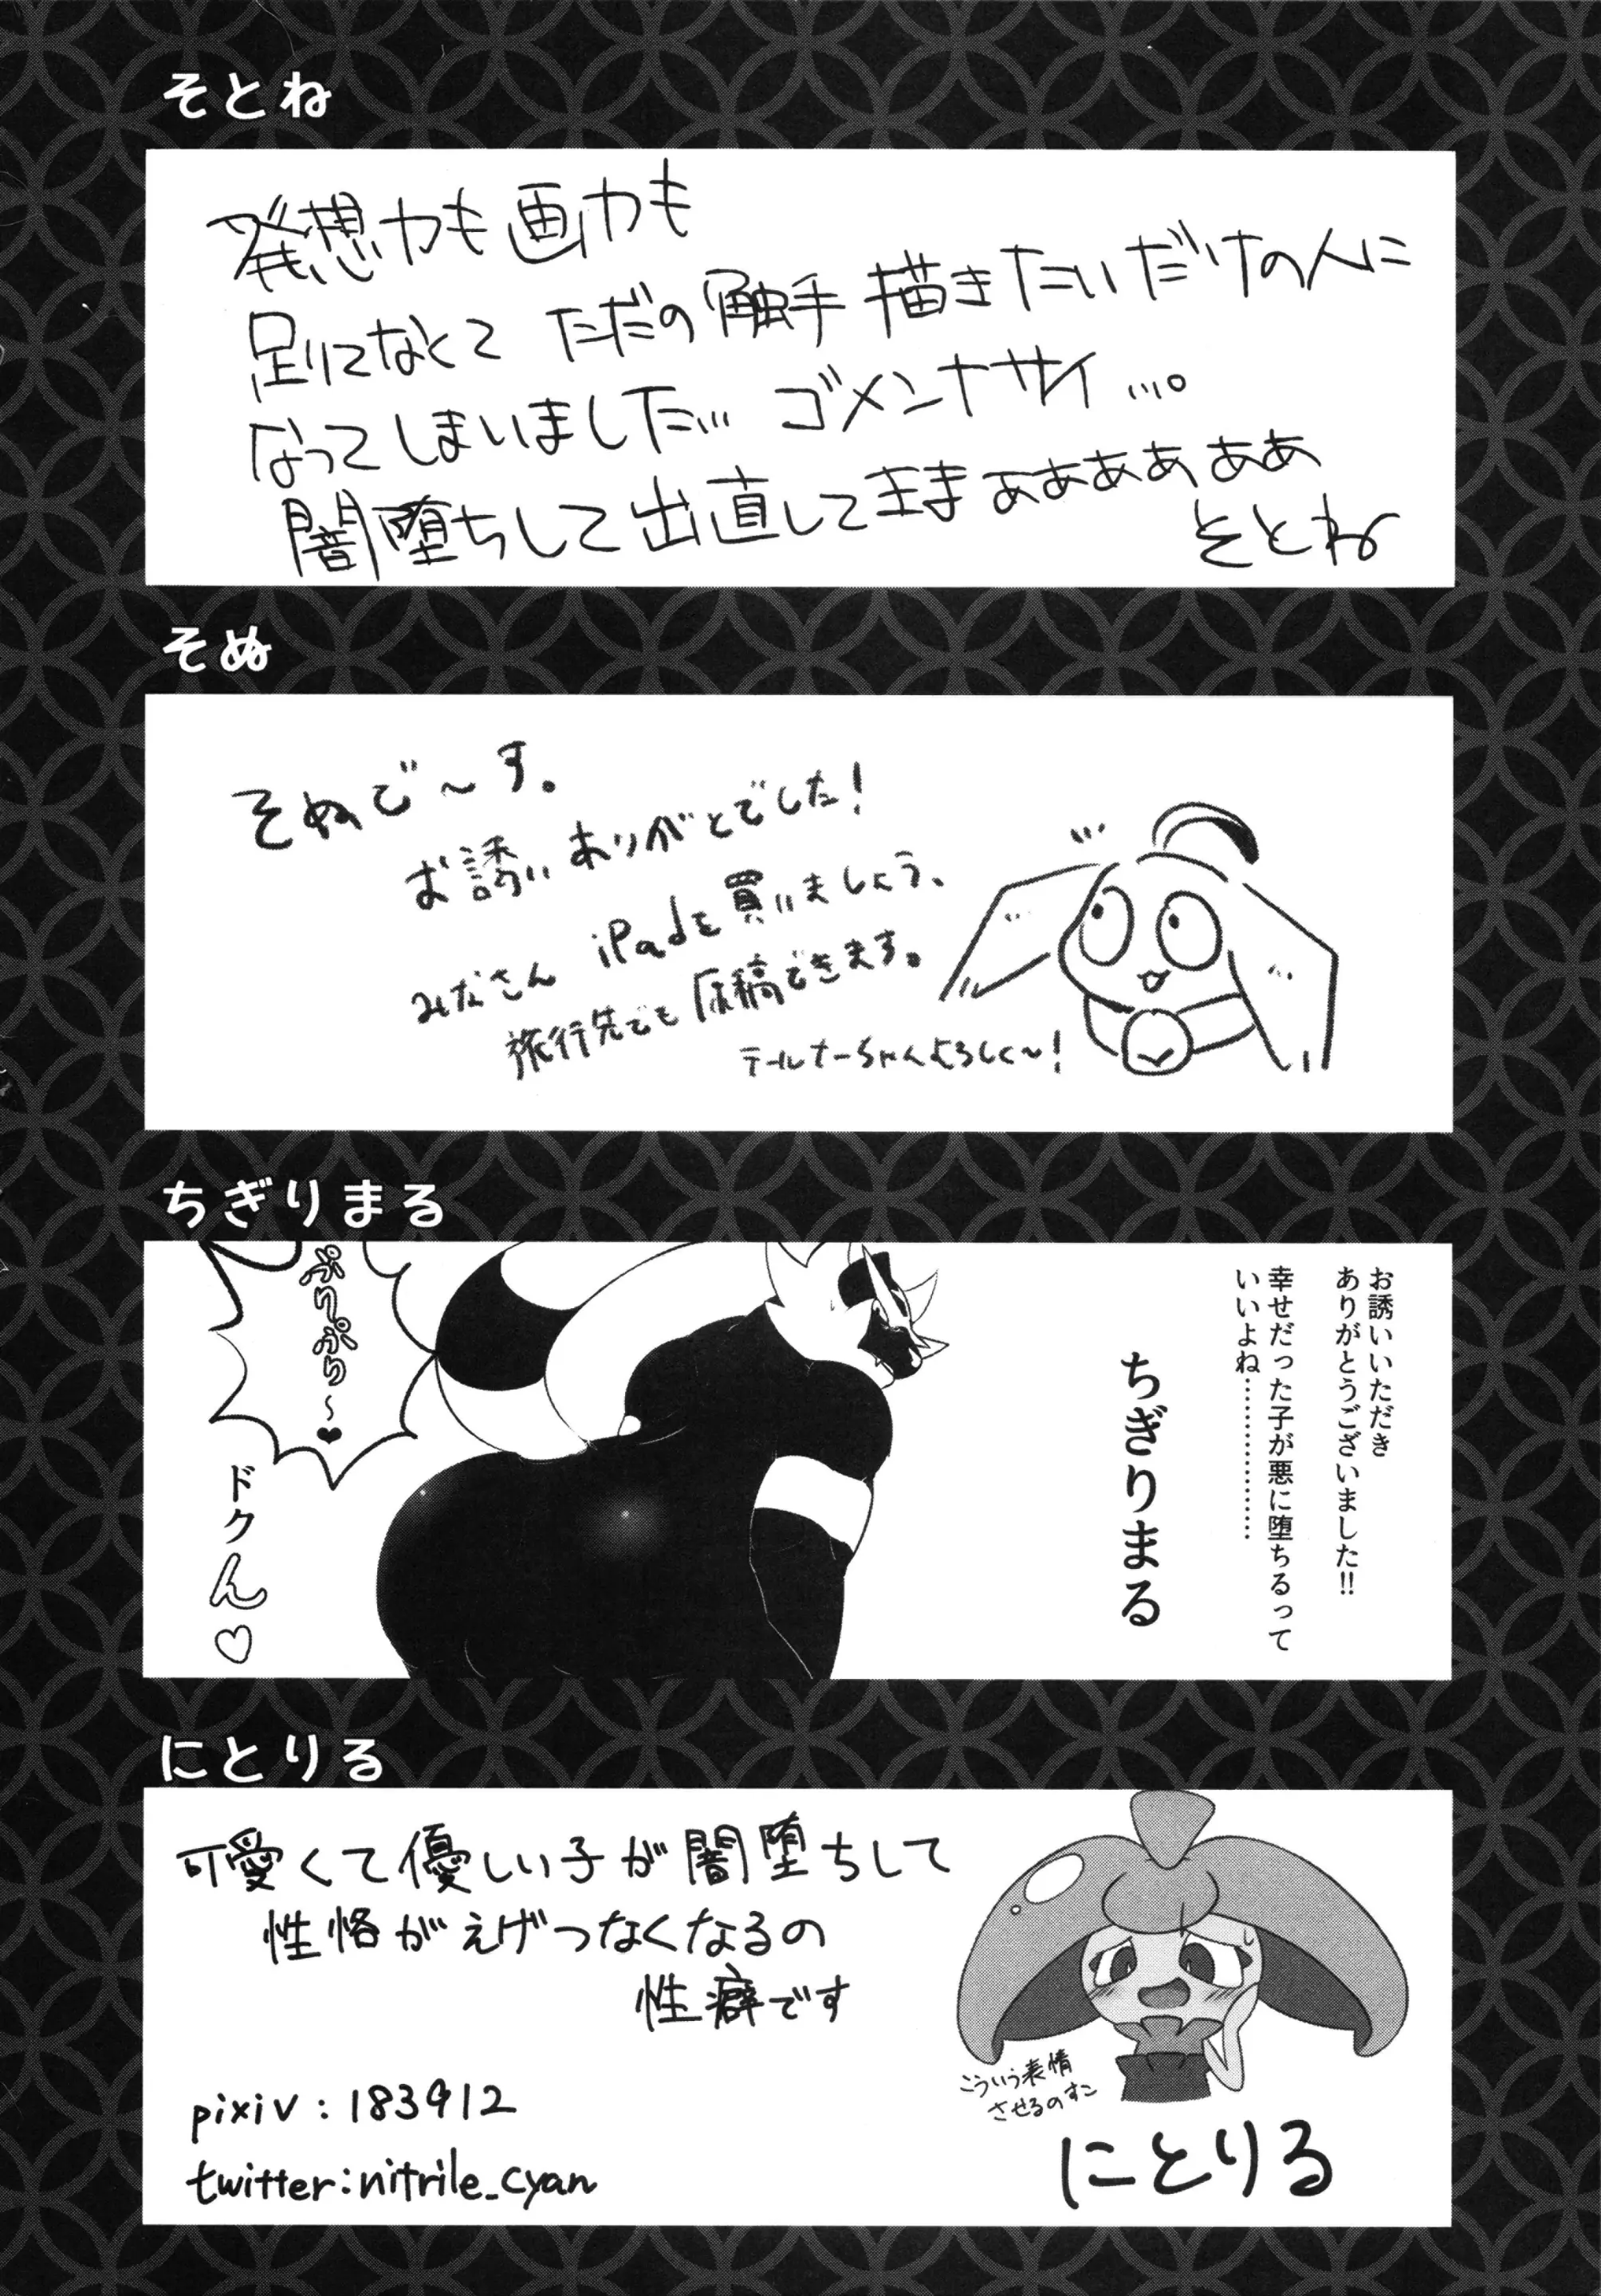 そとね
発想力も画力も
足りてなくて ただの触手描きたいだけの人に
なってしまいました… ゴメンナサイ…。
闇堕ちして出直してきまぁああああああ
そとね
そぬ
そぬで〜す。
お誘いありがとでした!
みなさん iPadを買いましょう、
旅行先でも原稿できます。
テールナーちゃんよろしく〜!
ちぎりまる
お誘いいただき
ありがとうございました!!
幸せだった子が悪に堕ちるって
いいよね………………
ちぎりまる
ぷりぷり〜❤
ドクん♡
にとりる
可愛くて優しい子が闇堕ちして
性格がえげつなくなるの
性癖です
こういう表情
させるのすこ
pixiv:183912
twitter:nitrile_cyan
にとりる